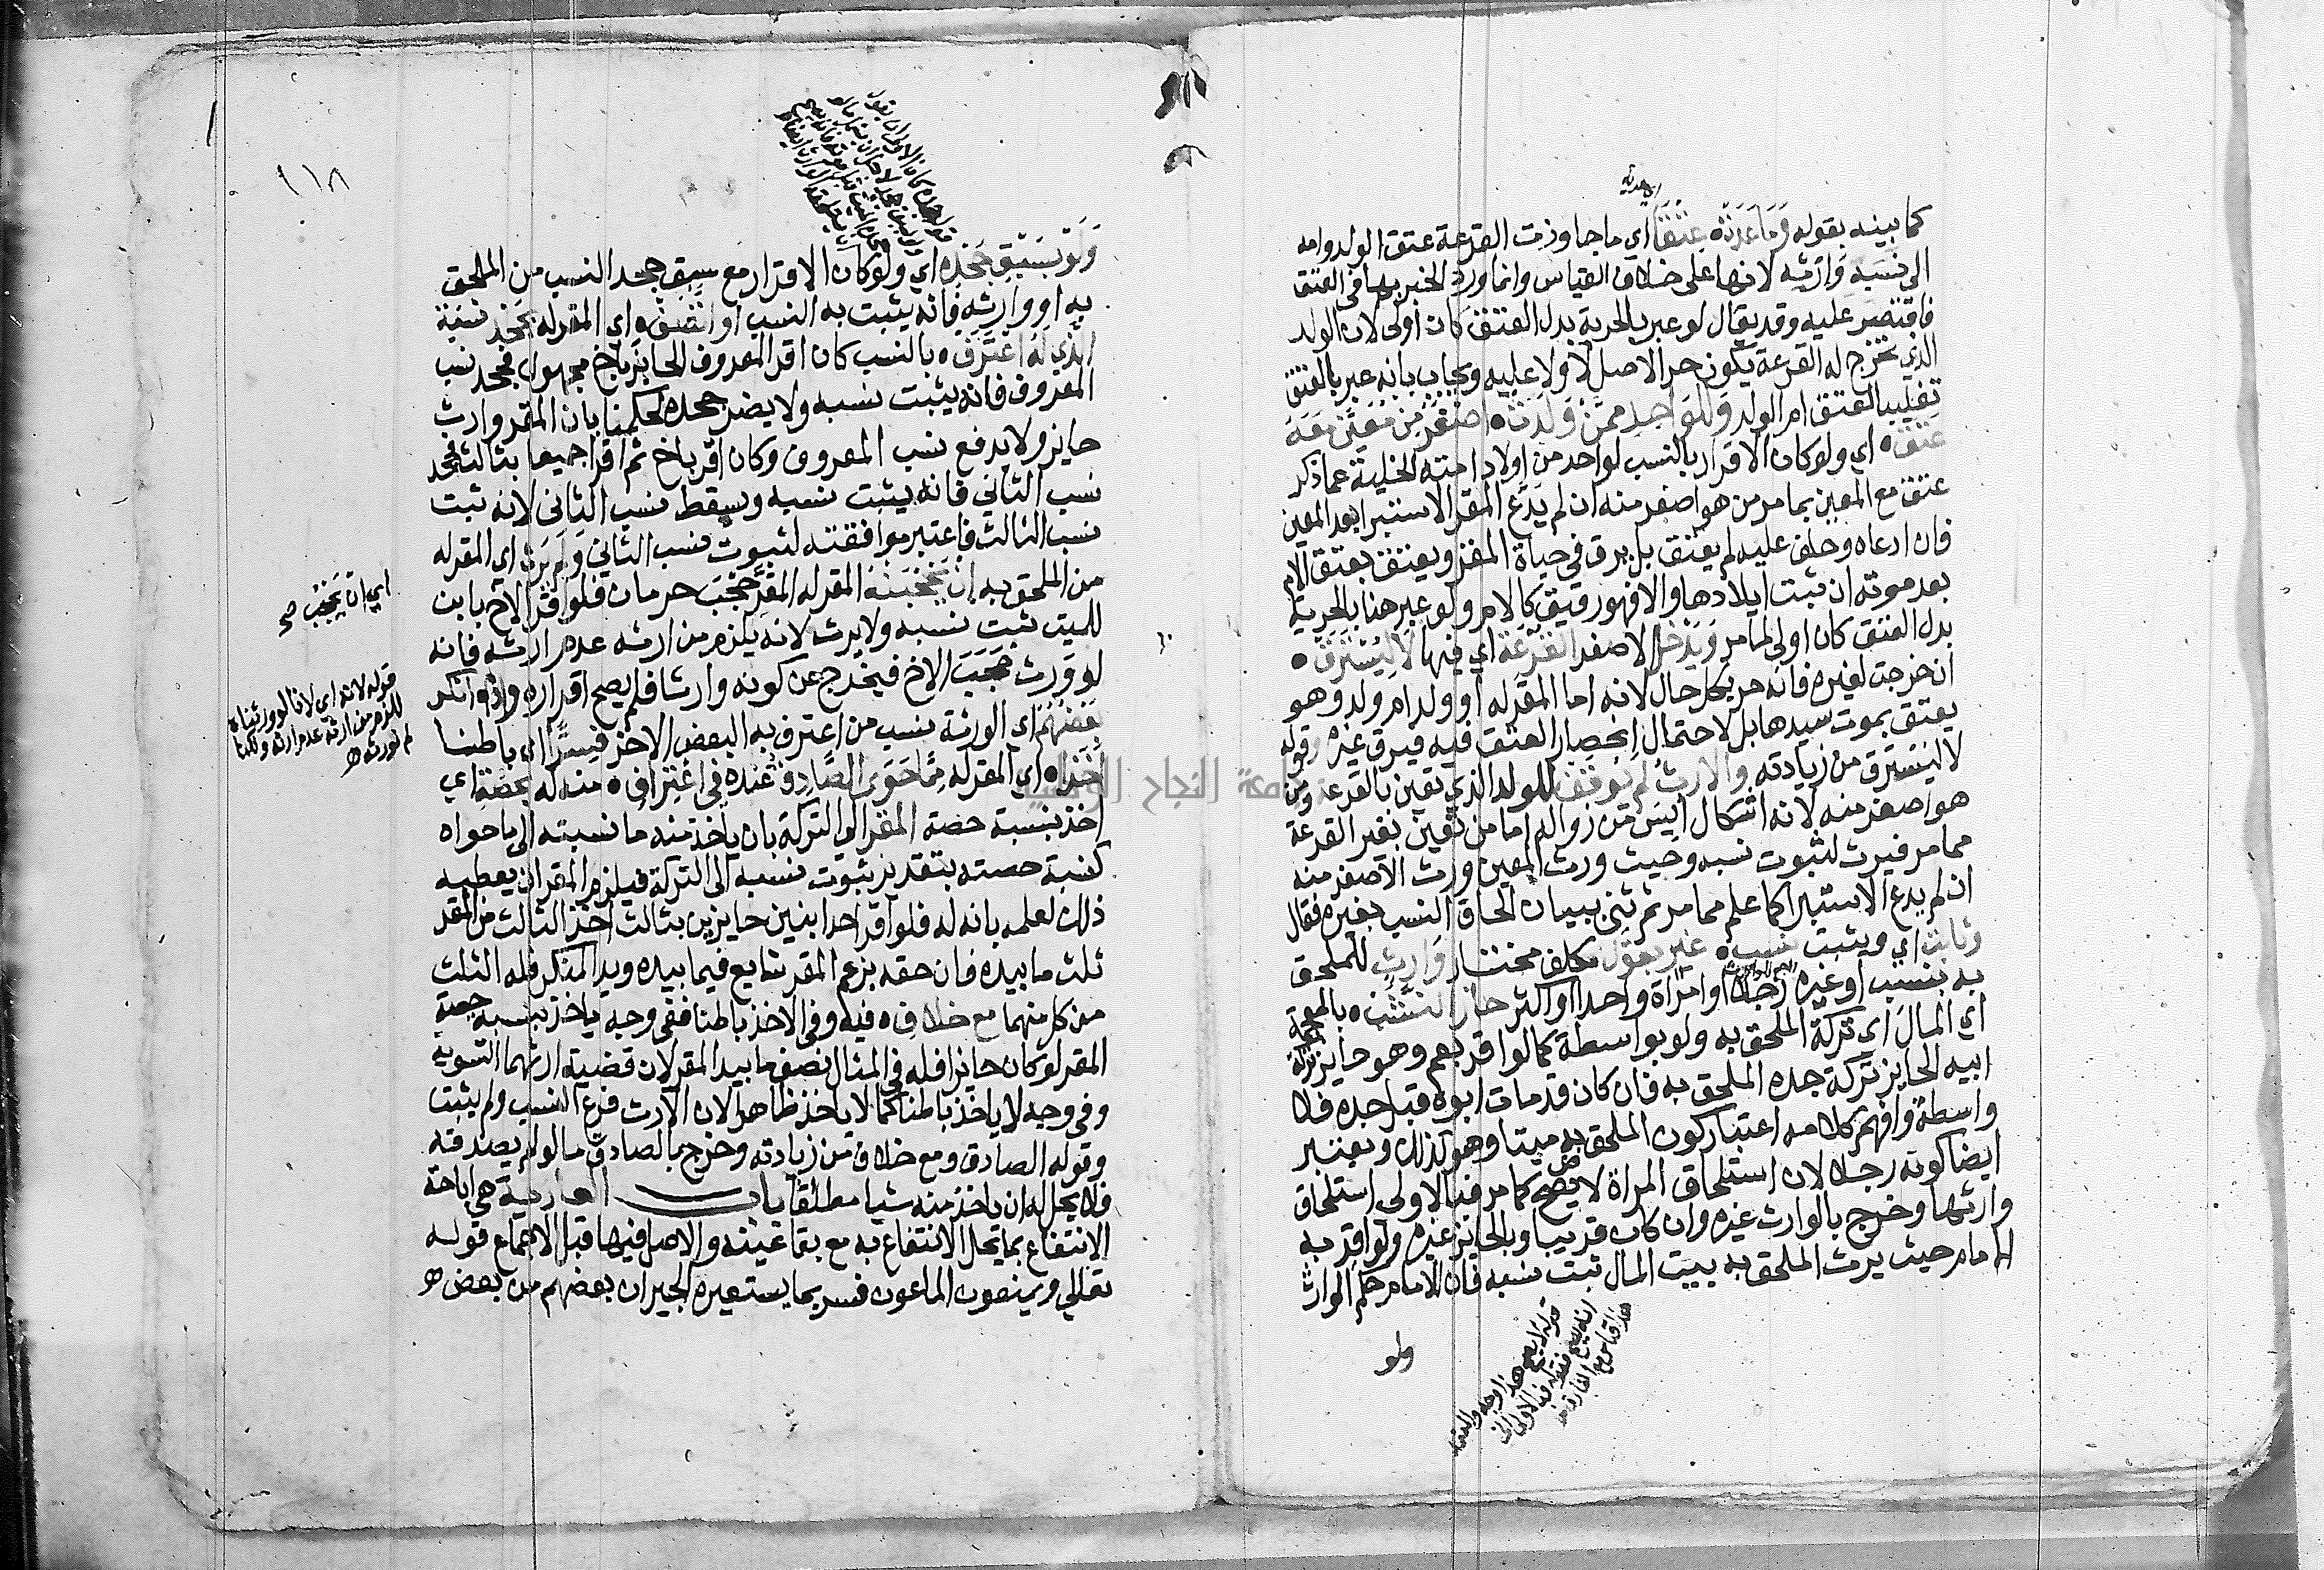 كما بينه بقوله وما عدته عتقا اي ما جاوزت القرعة عتق الولد وامه
الى نسبه وارثه لانها على خلاف القياس وانما ورد الخبر بها في العتق
فاقتصر عليه وقد يقال لو عبر بالحرية بدل العتق كان اولى لان الولد
الذي تخرج له القرعة يكون حر الاصل لا ولا عليه ويجاب بانه عبر بالعتق
تغليبا لعتق ام الولد وللواحد ممن ولدته اصغر من معين معه
عتق اي ولو كان الاقرار بالنسب لواحد من اولاد امته الخلية عما ذكر
عتق مع المعين بما مر من هو اصغر منه ان لم يدع المقر الاستبرا بعد المعين
فان ادعاه وحلف عليه لم يعتق بل يرق في حياة المقر ويعتق بعتق الام
بعد موته ان ثبت ايلادها والا فهو رقيق كالام ولو عبر هنا بالحرية
بدل العتق كان اولى لما مر ويدخل الاصغر القرعة اي فيها لا ليسترق
ان خرجت لغيره فانه حر بكل حال لانه اما المقر له او ولد ام ولد وهو
يعتق بموت سيدها بل لاحتمال انحصار العتق فيه فيرق غيره وقوله
لا ليسترق من زيادته والارث لم يوقف للولد الذي تعين بالقرعة ومن
هو اصغر منه لانه اشكال ايس من زواله اما من تعين بغير القرعة
مما مر فيرث لثبوت نسبه وحيث ورث المعين ورث الاصغر منه
ان لم يدع الاستبرا كما علم مما مر ثم ثنى ببيان الحاق النسب بغيره فقال
وثابت اي ويثبت نسب غير بقول مكلف مختار وارث للملحق
به بنسب او غيره رجلا او امراة واحدا او اكثر حاز النشب بالمعجمة
اي المال اي تركة الملحق به ولو بواسطة كما لو اقر بعم وهو حايز تركة
ابيه الحايز تركة جده الملحق به فان كان قد مات ابوه قبل جده فلا
واسطة وافهم كلامه اعتبار كون الملحق به ميتا وهو كذلك ويعتبر
ايضا كونه رجلا لان استلحاق المراة لا يصح كما مر فبالاولى استلحاق
وارثها وخرج بالوارث غيره وان كان قريبا وبالحايز غيره ولو اقر به
الامام حيث يرث الملحق به بيت المال ثبت نسبه فان للامام حكم الوارث
ولو
١١٨
ولو بسبق جحده اي ولو كان الاقرار مع سبق جحد النسب من الملحق
به او وارثه فانه يثبت به النسب او اتصف اي المقر له بجحد نسبة
الذي له اعترف بالنسب كان اقر المعروف الحايز باخ مجهول فجحد نسب
المعروف فانه يثبت نسبه ولا يضر جحده لحكمنا بان المقر وارث
حايز ولا يدفع نسب المعروف وكان اقر باخ ثم اقرا جميعا بثالث فجحد
نسب الثاني فانه يثبت نسبه ويسقط نسب الثاني لانه ثبت
نسب الثالث فاعتبر موافقته لثبوت نسب الثاني ولم يرث اي المقر له
من الملحق به ان يحجبنه المقر له المقر حجب حرمان فلو اقر الاخ بابن
للميت ثبت نسبه ولا يرث لانه يلزم من ارثه عدم ارثه فانه
لو ورث حجب الاخ فيخرج عن كونه وارثا فلم يصح اقراره واذا انكر
بعضهم اي الورثة نسب من اعترف به البعض الاخر فيسرا اي باطنا
اخذا اي المقر له مما حوى الصادق عنده في اعتراف منه له بحصة اي
اخذ بنسبة حصة المقر الى التركة بان ياخذ منه ما نسبته الى ما حواه
كنسبة حصته بتقدير ثبوت نسبه الى التركة فيلزم المقر ان يعطيه
ذلك لعلمه بانه له فلو اقر احد ابنين حايزين بثالث اخذ الثالث من المقر
ثلث ما بيده فان حقه بزعم المقر شايع فيما بيده ويد المنكر فله الثلث
من كل منهما مع خلاف فيه وفي الاخذ باطنا ففي وجه ياخذ بنسبة حصة
المقر لو كان حايزا فله في المثال نصف ما بيد المقر لان قضية ارثهما التسوية
وفي وجه لا ياخذ باطنا كما لا ياخذ ظاهرا لان الارث فرع النسب ولم يثبت
وقوله الصادق ومع خلاف من زيادته وخرج بالصادق ما لو لم يصدقه
فلا يحل له ان ياخذ منه شيا مطلقا باب العارية هي اباحة
الانتفاع بما يحل الانتفاع به مع بقا عينه والاصل فيها قبل الاجماع قوله
تعالى ويمنعون الماعون فسر بما يستعيره الجيران بعضهم من بعض
اي ان يحجب صح
قوله لانه اي لانا لو ورثناه
للزم من ارثه عدم ارثه
لم نورثه
جامعة النجاح الوطنية